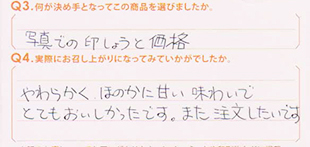 Q3.何が決め手となってこの商品を選びましたか。
写真での印しょうと価格
Q4.実際にお召し上がりになってみていかがでしたか。
やわらかく、ほのかに甘い味わいで
とてもおいしかったです。また注文したいです